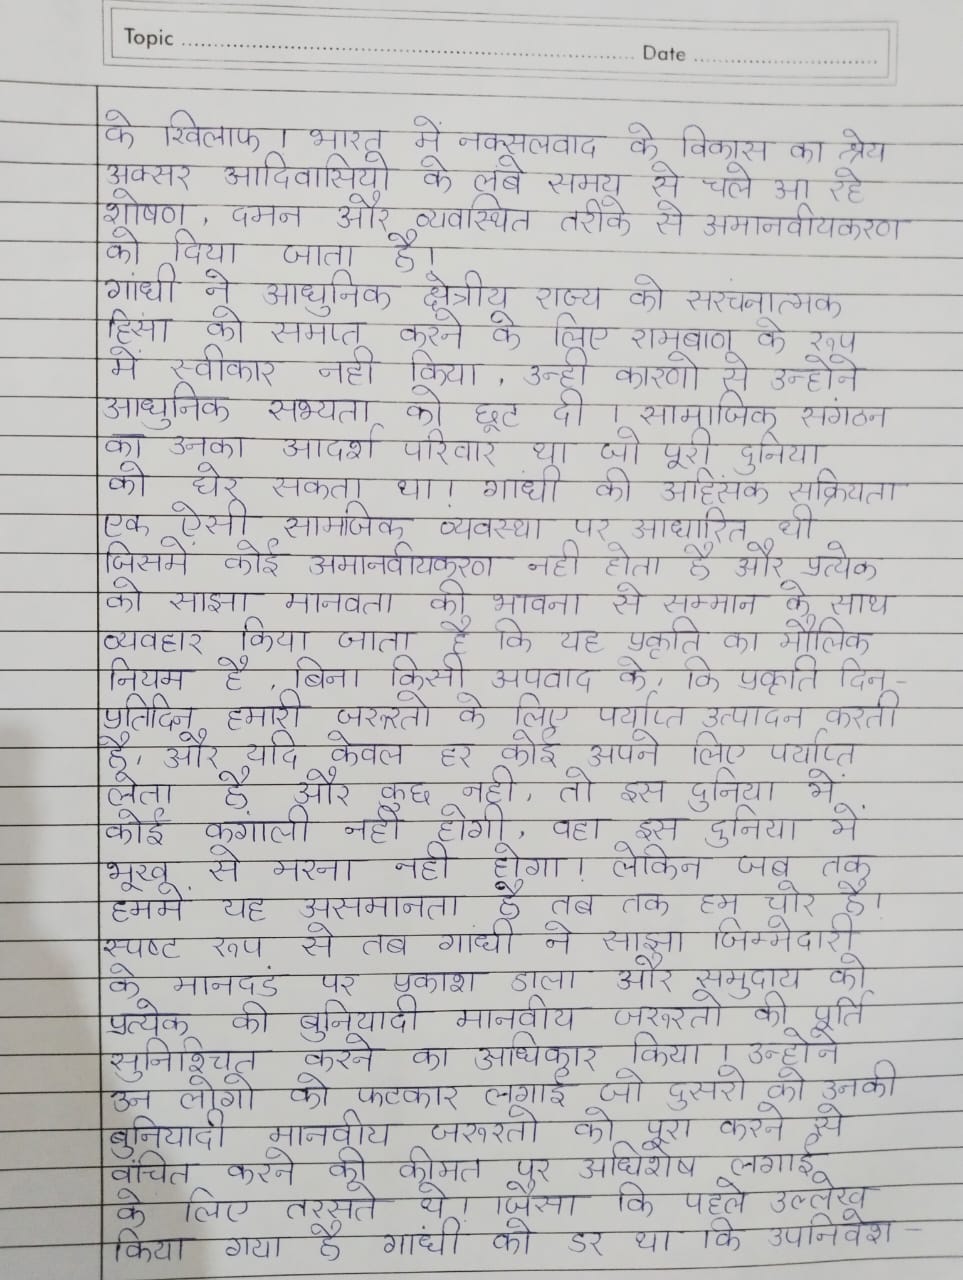 Topic ........ Date ........
के खिलाफ। भारत में नक्सलवाद के विकास का श्रेय
अक्सर आदिवासियो के लंबे समय से चले आ रहे
शोषण, दमन और व्यवस्थित तरीके से अमानवीयकरण
को दिया जाता है।
गांधी ने आधुनिक क्षेत्रीय राज्य को सरंचनात्मक
हिसां को समाप्त करने के लिए रामबाण के रूप
में स्वीकार नही किया, उन्ही कारणो से उन्होने
आधुनिक सभ्यता को छूट दी। सामाजिक सगंठन
का उनका आदर्श परिवार था जो पूरी दुनिया
को घेर सकता था। गांधी की अहिंसक सक्रियता
एक ऐसी सामाजिक व्यवस्था पर आधारित थी
जिसमें कोई अमानवीयकरण नही होता है और प्रत्येक
को साझा मानवता की भावना से सम्मान के साथ
व्यवहार किया जाता है कि यह प्रकृति का मौलिक
नियम है, बिना किसी अपवाद के, कि प्रकृति दिन-
प्रतिदिन हमारी जरूरतो के लिए पर्याप्त उत्पादन करती
है, और यदि केवल हर कोई अपने लिए पर्याप्त
लेता है और कुछ नही, तो इस दुनिया में
कोई कगांली नही होगी, वहा इस दुनिया में
भूख से मरना नही होगा। लेकिन जब तक
हममे यह असमानता है तब तक हम चोर है।
स्पष्ट रूप से तब गांधी ने साझा जिम्मेदारी
के मानदडं पर प्रकाश डाला और समुदाय को
प्रत्येक की बुनियादी मानवीय जरूरतो की पूर्ति
सुनिश्चित करने का अधिकार किया। उन्होने
उन लोगो को फटकार लगाई जो दुसरो को उनकी
बुनियादी मानवीय जरूरतो को पूरा करने से
वंचित करने की कीमत पर अधिशेष लगाई
के लिए तरसते थे। जैसा कि पहले उल्लेख
किया गया है गांधी को डर था कि उपनिवेश-